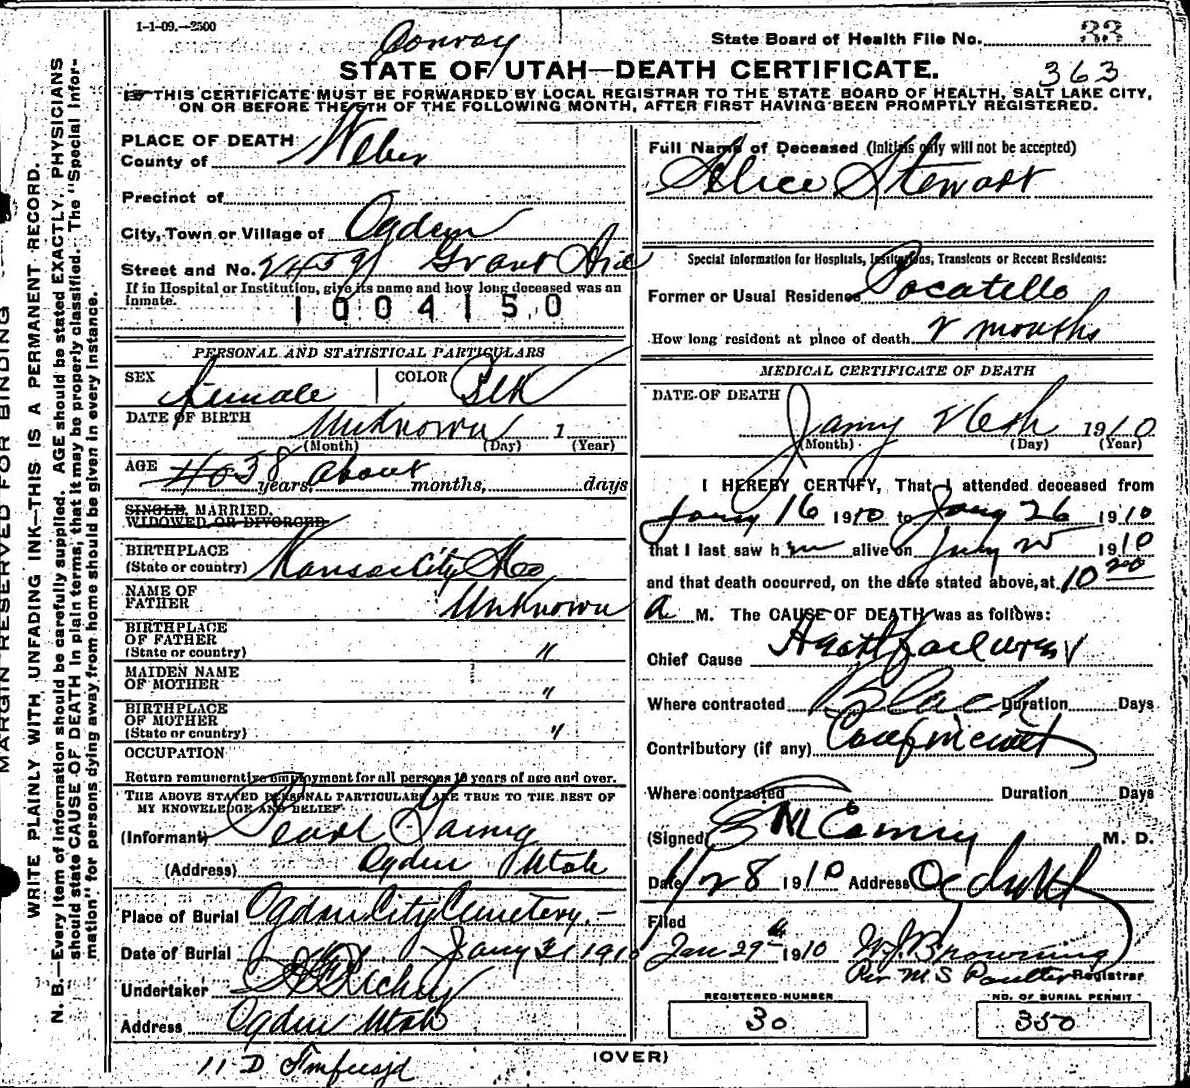 1-1-09.—2500
Conroy
State Board of Health File No.
STATE OF UTAH—DEATH CERTIFICATE.
363
THIS CERTIFICATE MUST BE FORWARDED BY LOCAL REGISTRAR TO THE STATE BOARD OF HEALTH, SALT LAKE CITY,
ON OR BEFORE THE 5TH OF THE FOLLOWING MONTH, AFTER FIRST HAVING BEEN PROMPTLY REGISTERED.
MARGIN RESERVED FOR BINDING
WRITE PLAINLY WITH UNFADING INK—THIS IS A PERMANENT RECORD.
N. B.—Every item of information should be carefully supplied. AGE should be stated EXACTLY. PHYSICIANS
should state CAUSE OF DEATH in plain terms, that it may be properly classified. The "Special Infor-
mation" for persons dying away from home should be given in every instance.
PLACE OF DEATH
County of Weber
Precinct of
City, Town or Village of Ogden
Street and No. 2459 Grant Ave
If in Hospital or Institution, give its name and how long deceased was an
inmate.
1004150
PERSONAL AND STATISTICAL PARTICULARS
SEX Female COLOR Blk
DATE OF BIRTH Unknown 1
(Month) (Day) (Year)
AGE 40 38 years, about months, days
SINGLE, MARRIED,
WIDOWED, OR DIVORCED
BIRTHPLACE
(State or country) Kansas City Mo
NAME OF
FATHER Unknown
BIRTHPLACE
OF FATHER
(State or country) "
MAIDEN NAME
OF MOTHER "
BIRTHPLACE
OF MOTHER
(State or country) "
OCCUPATION
Return remunerative employment for all persons 10 years of age and over.
THE ABOVE STATED PERSONAL PARTICULARS ARE TRUE TO THE BEST OF
MY KNOWLEDGE AND BELIEF
(Informant) Pearl
(Address) Ogden Utah
Place of Burial Ogden City Cemetery
Date of Burial Jany 31 1910
Undertaker Richey
Address Ogden Utah
11-D
Full Name of Deceased (Initials only will not be accepted)
Alice Stewart
Special Information for Hospitals, Institutions, Transients or Recent Residents:
Former or Usual Residence Pocatello
How long resident at place of death 2 months
MEDICAL CERTIFICATE OF DEATH
DATE OF DEATH
Jany 26th 1910
(Month) (Day) (Year)
I HEREBY CERTIFY, That I attended deceased from
Jany 16 1910 to Jany 26 1910
that I last saw h er alive on Jany 25 1910
and that death occurred, on the date stated above, at 10 20
a M. The CAUSE OF DEATH was as follows:
Chief Cause Heart failure
Where contracted Duration Days
Contributory (if any) Confinement
Where contracted Duration Days
(Signed) M. D.
Date 1/28 1910 Address Ogden Utah
Filed
Jan 29th 1910 W. J. Browning
Per M S Poulter Registrar
REGISTERED NUMBER
30
NO. OF BURIAL PERMIT
350
(OVER)